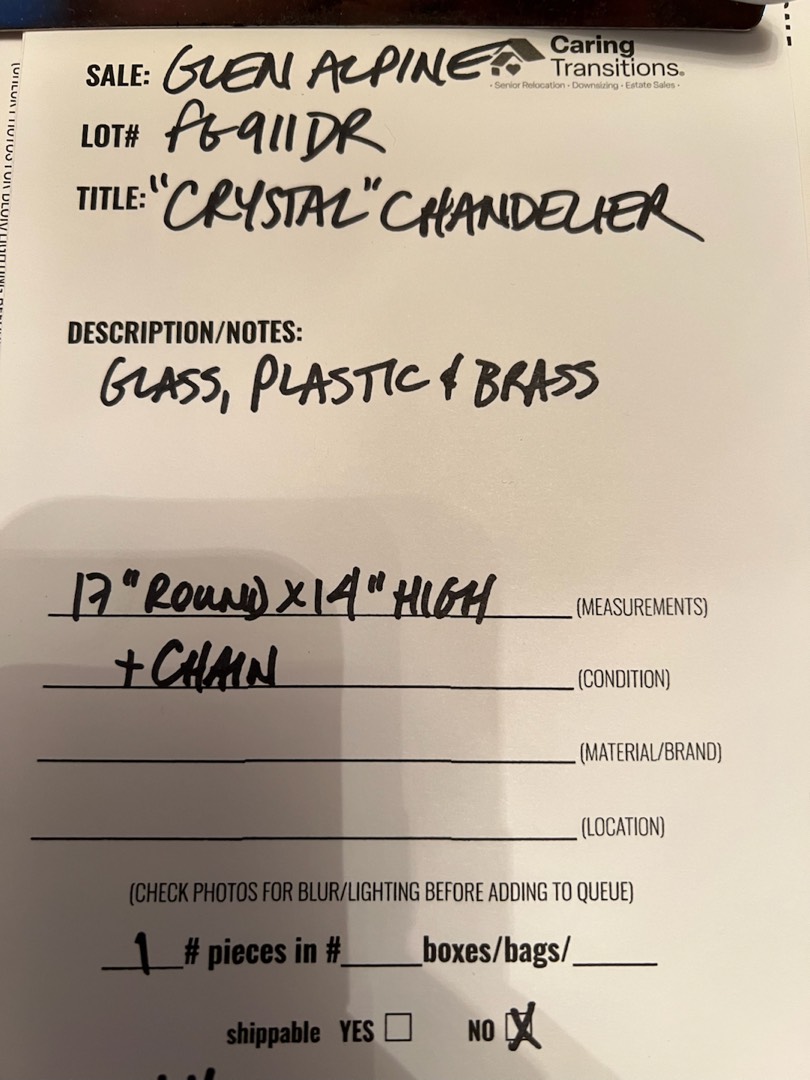 SALE: GLEN ALPINE
Caring
Transitions®
• Senior Relocation • Downsizing • Estate Sales •
LOT# FG911DR
TITLE: "CRYSTAL" CHANDELIER
DESCRIPTION/NOTES:
GLASS, PLASTIC & BRASS
17" ROUND X 14" HIGH (MEASUREMENTS)
+ CHAIN (CONDITION)
(MATERIAL/BRAND)
(LOCATION)
(CHECK PHOTOS FOR BLUR/LIGHTING BEFORE ADDING TO QUEUE)
1 # pieces in #____ boxes/bags/____
shippable YES ☐ NO ☒